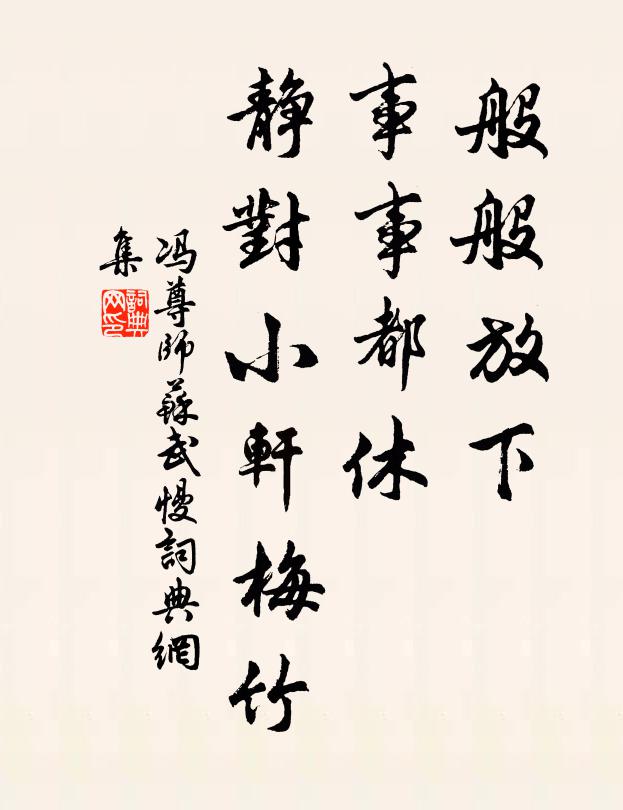 般般放下
事事都休
静對小軒梅竹
冯尊師蘇武慢詞典網
集
詞典
网印